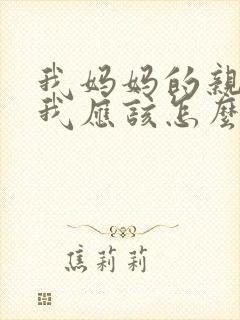 我妈妈的親
我應該怎麼
焦莉莉